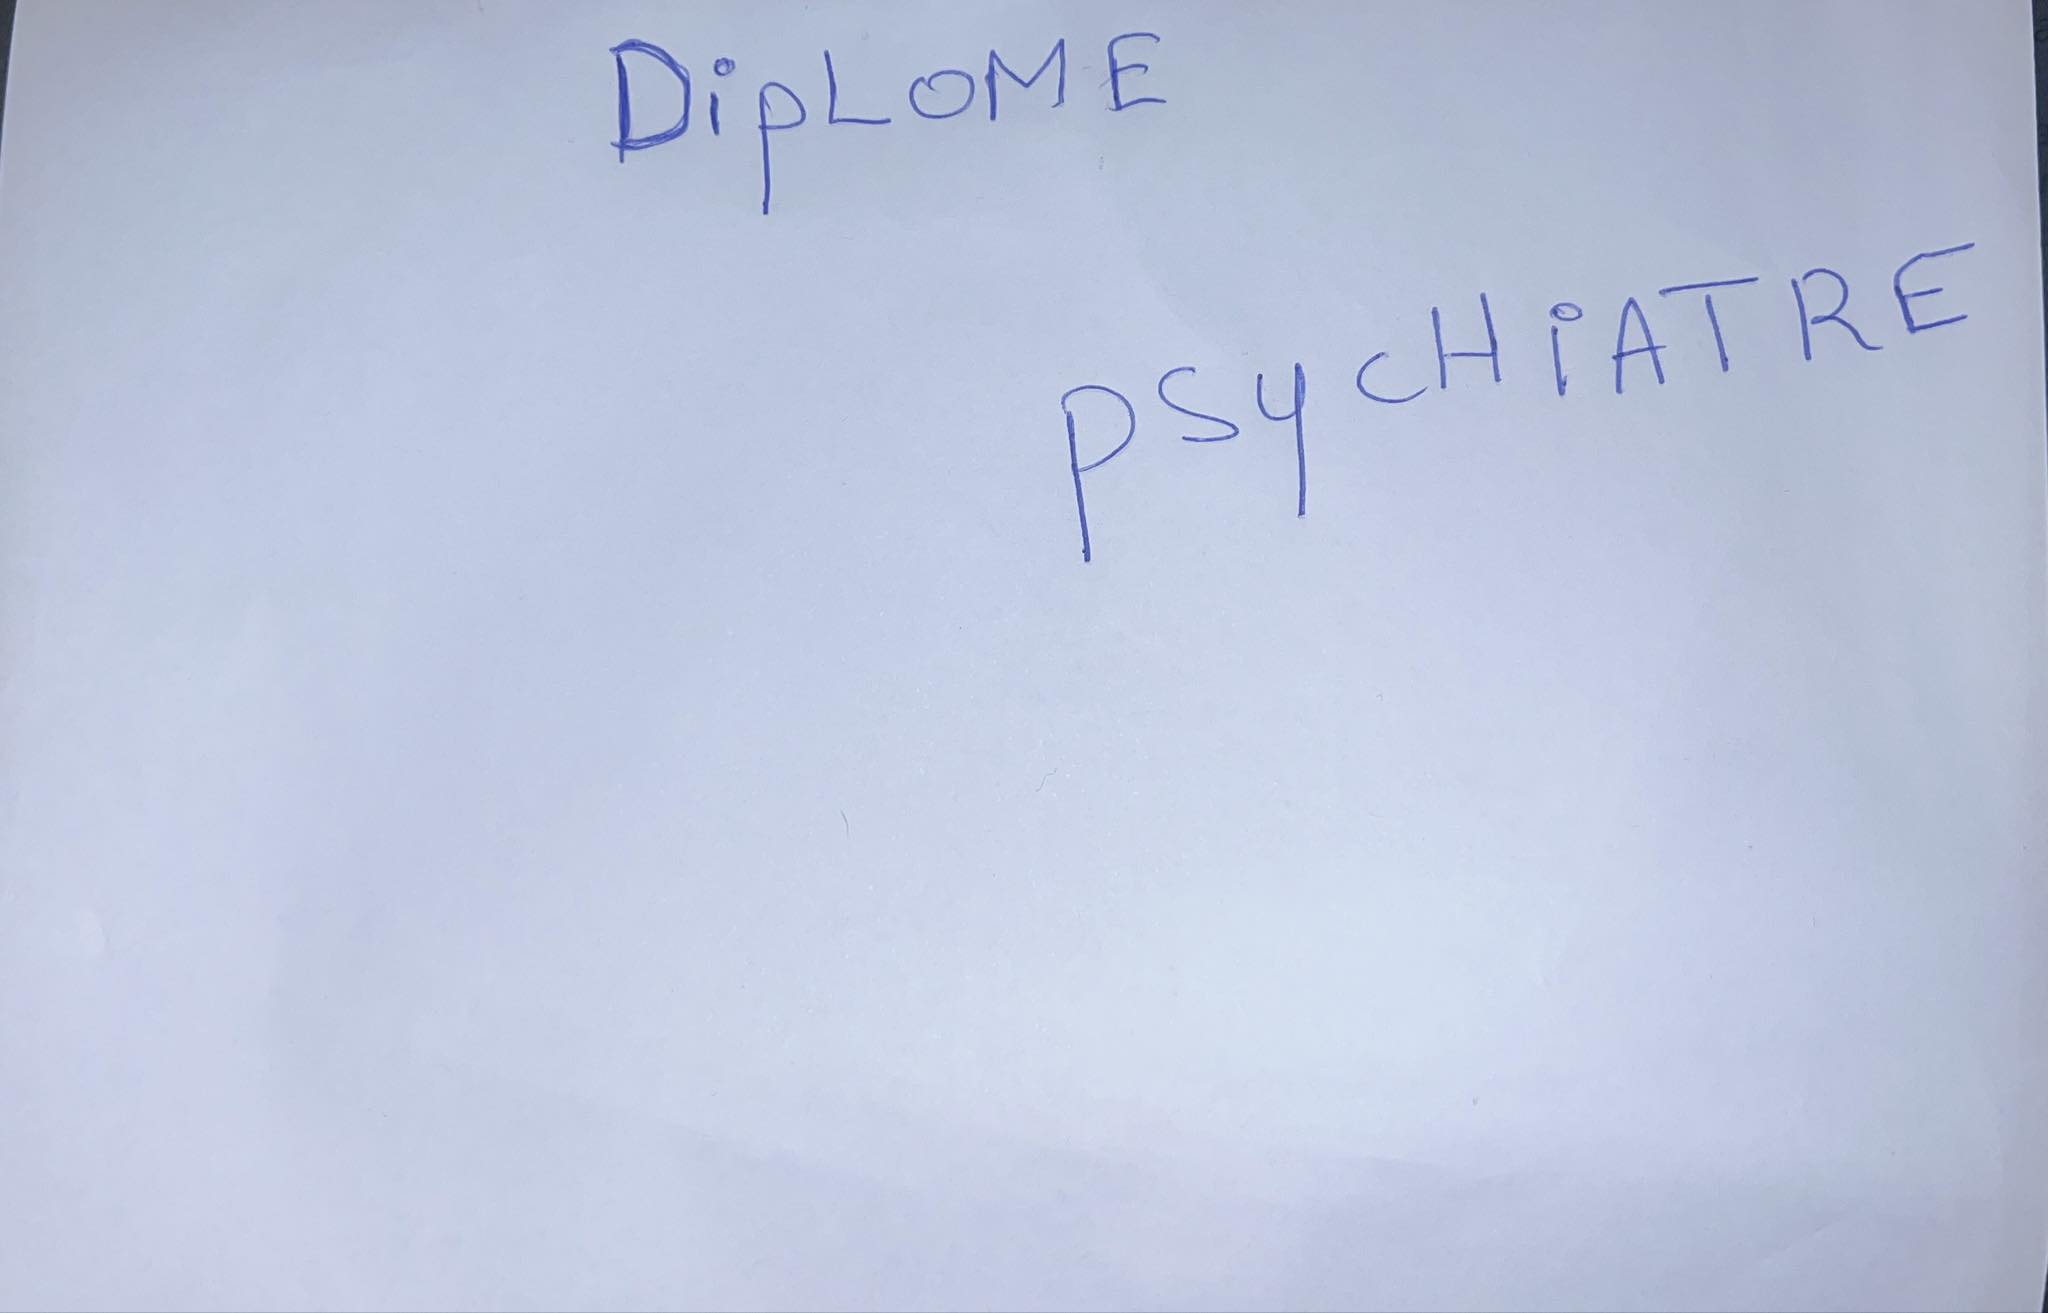 DipLOME
PSycHiATRE